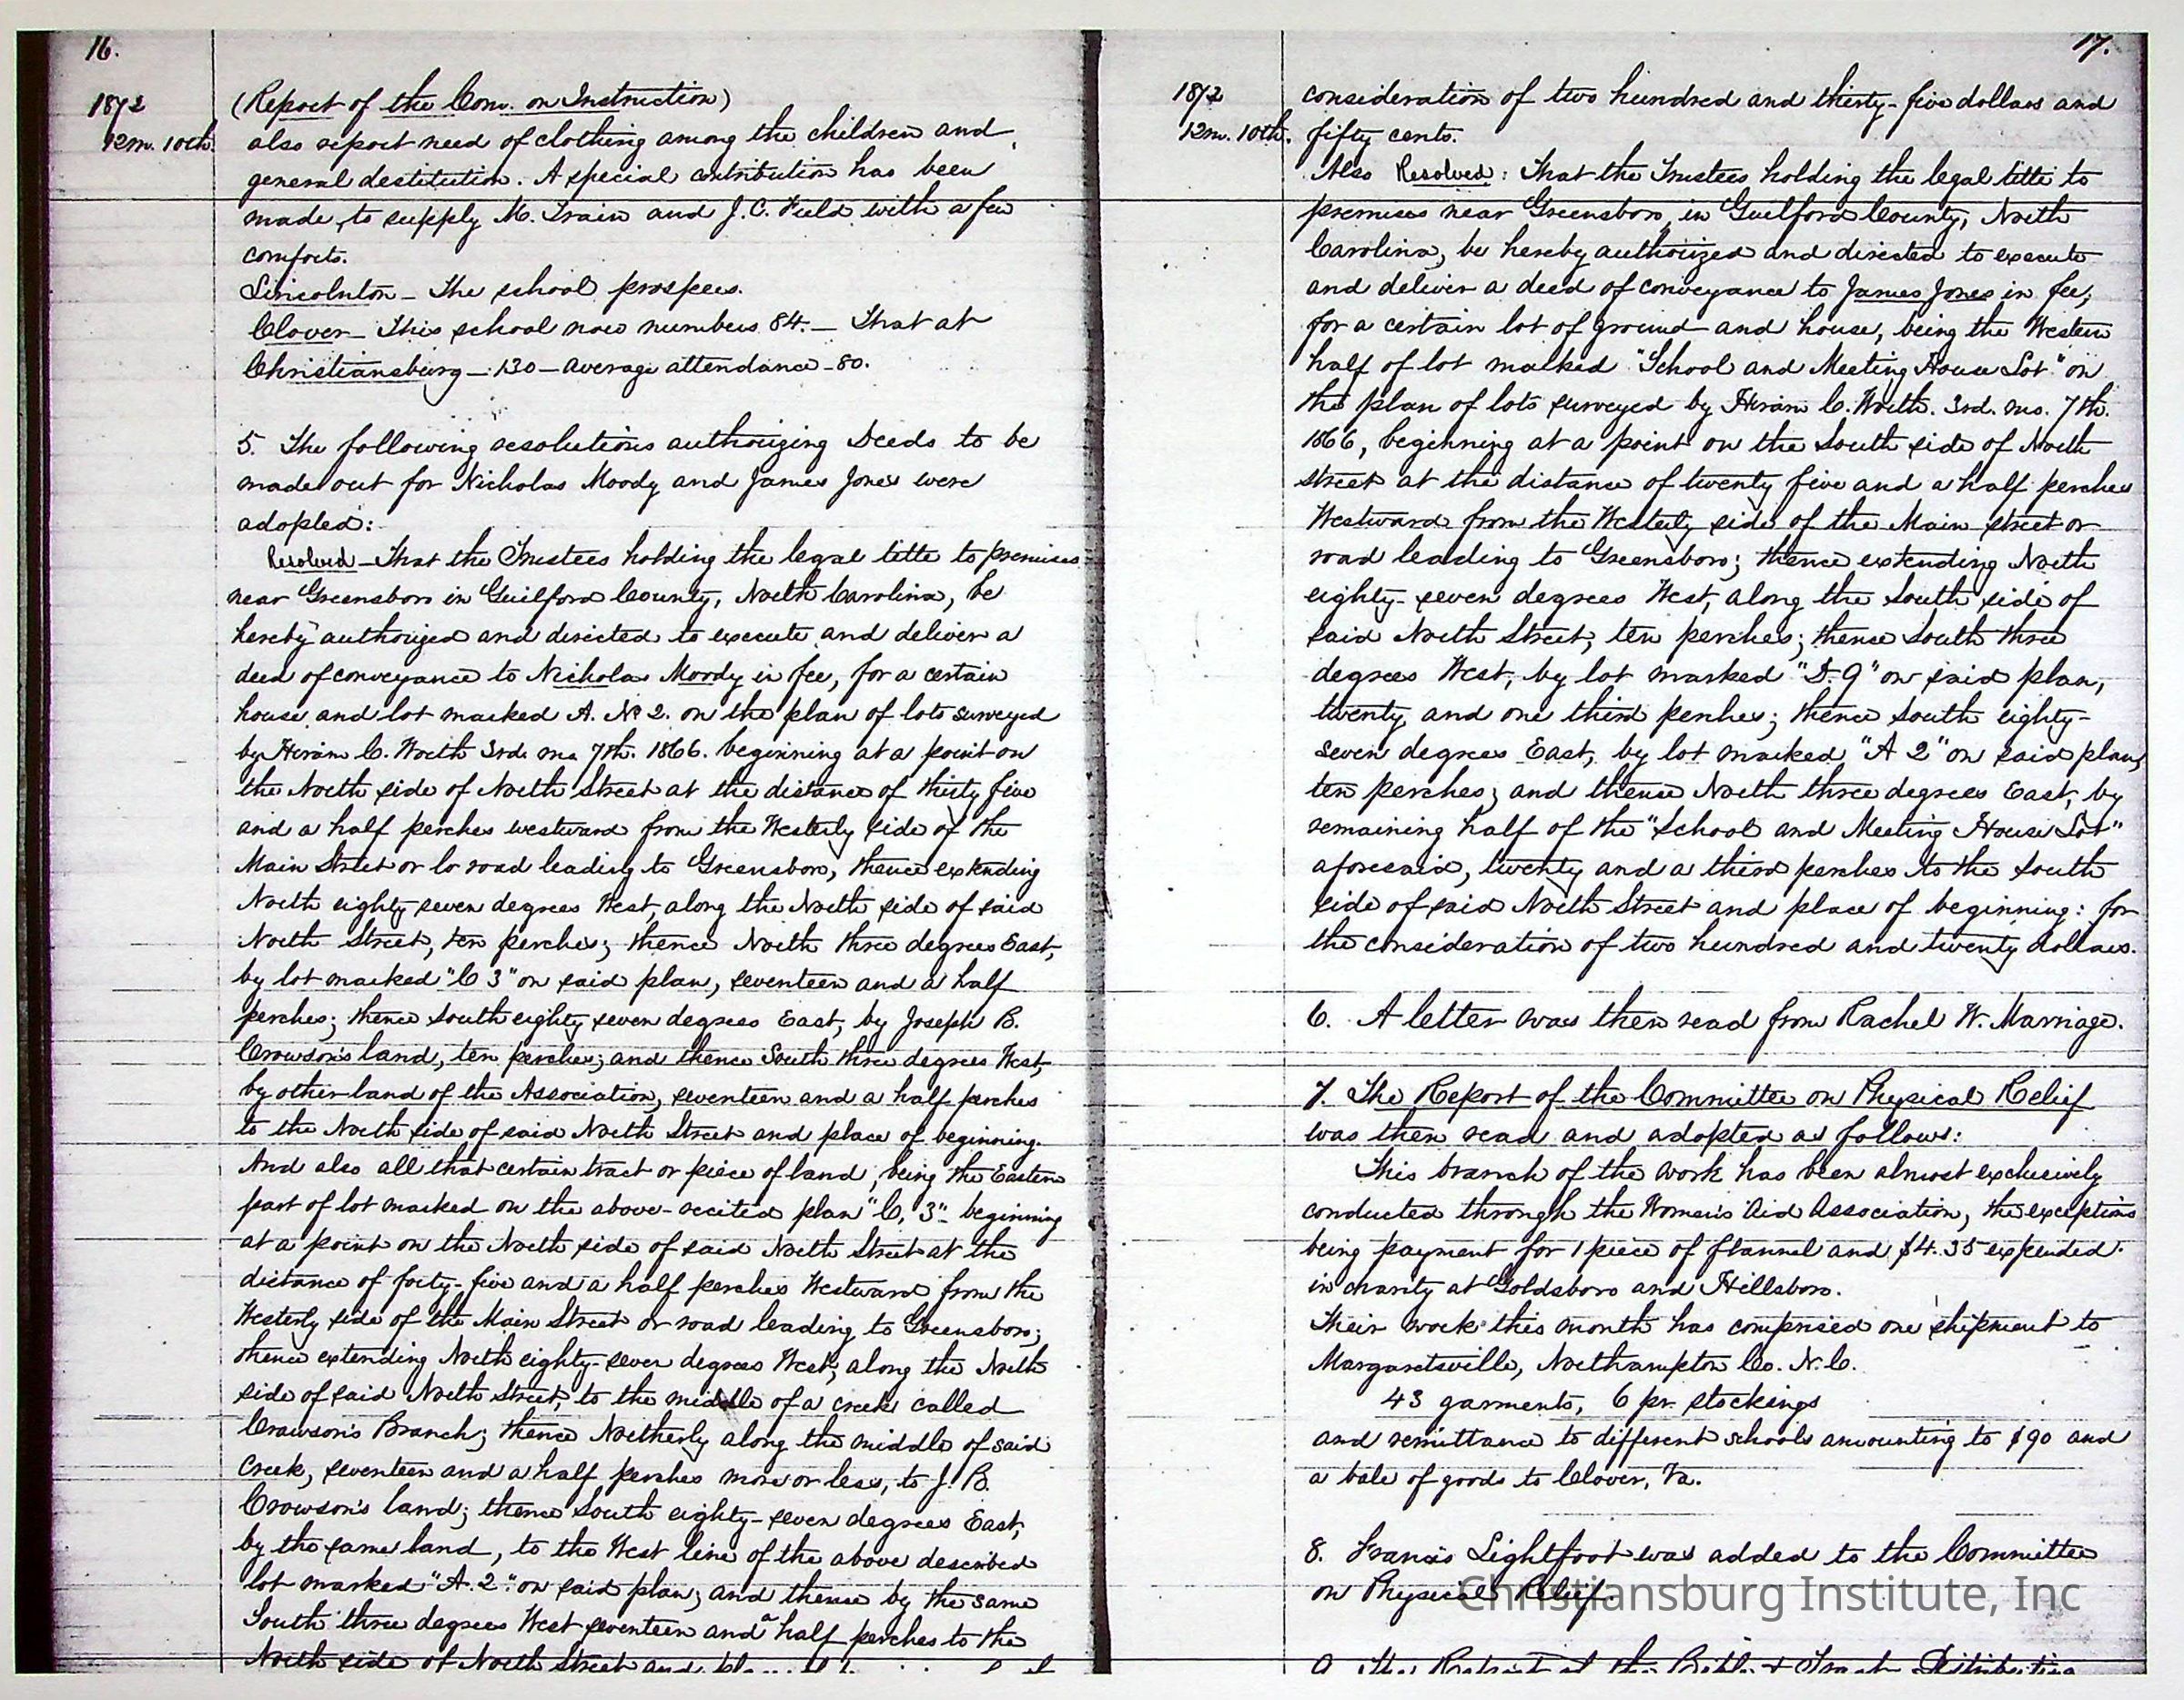 16.
1872
12m. 10th.
(Report of the Com. on Instruction)
also report need of clothing among the children and
general destitution. A special contribution has been
made to supply M. Train and J. C. Field with a few
comforts.
Lincolnton - The school prospers.
Clover - This school now numbers 84. - That at
Christiansburg - 130 - average attendance - 80.
5. The following resolutions authorizing Deeds to be
made out for Nicholas Moody and James Jones were
adopted:
Resolved - That the Trustees holding the legal title to premises
near Greensboro in Guilford County, North Carolina, be
hereby authorized and directed to execute and deliver a
deed of conveyance to Nicholas Moody in fee, for a certain
house and lot marked A. No 2. on the plan of lots surveyed
by Hiram C. Worth 3rd. mo. 7th. 1866. beginning at a point on
the North side of North Street at the distance of thirty five
and a half perches westward from the Westerly side of the
Main Street or lo road leading to Greensboro, thence extending
North eighty seven degrees West, along the North side of said
North Street, ten perches; thence North three degrees East,
by lot marked "C 3" on said plan, seventeen and a half
perches; thence South eighty seven degrees East, by Joseph B.
Crowson's land, ten perches; and thence South three degrees West,
by other land of the Association, seventeen and a half perches
to the North side of said North Street and place of beginning.
And also all that certain tract or piece of land, being the Eastern
part of lot marked on the above-recited plan "C, 3" beginning
at a point on the North side of said North Street at the
distance of forty-five and a half perches Westward from the
Westerly side of the Main Street or road leading to Greensboro;
thence extending North eighty-seven degrees West, along the North
side of said North Street, to the middle of a creek called
Crawson's Branch; thence Northerly along the middle of said
Creek, seventeen and a half perches more or less, to J. B.
Crowson's land; thence South eighty-seven degrees East,
by the same land, to the West line of the above described
lot marked "A. 2." on said plan; and thence by the same
South three degrees West seventeen and a half perches to the
North side of North Street and
17.
1872
12m. 10th.
consideration of two hundred and thirty-five dollars and
fifty cents.
Also Resolved: That the Trustees holding the legal title to
premises near Greensboro, in Guilford County, North
Carolina, be hereby authorized and directed to execute
and deliver a deed of conveyance to James Jones in fee,
for a certain lot of ground and house, being the Western
half of lot marked "School and Meeting House Lot" on
the plan of lots surveyed by Hiram C. Worth. 3rd. mo. 7th.
1866, beginning at a point on the South side of North
Street at the distance of twenty five and a half perches
Westward from the Westerly side of the Main Street or
road leading to Greensboro; thence extending North
eighty-seven degrees West, along the South side of
said North Street, ten perches; thence South three
degrees West, by lot marked "D. 9" on said plan,
twenty and one third perches; thence South eighty-
seven degrees East, by lot marked "A 2" on said plan,
ten perches; and thence North three degrees East, by
remaining half of the "School and Meeting House Lot"
aforesaid, twenty and a third perches to the South
side of said North Street and place of beginning: for
the consideration of two hundred and twenty dollars.
6. A letter was then read from Rachel W. Marriage.
7. The Report of the Committee on Physical Relief
was then read and adopted as follows:
This branch of the work has been almost exclusively
conducted through the Women's Aid Association, the exceptions
being payment for 1 piece of flannel and $4.35 expended
in charity at Goldsboro and Hillsboro.
Their work this month has comprised one shipment to
Margarettsville, Northampton Co. N. C.
43 garments, 6 pr. stockings
and remittance to different schools amounting to $90 and
a bale of goods to Clover, Va.
8. Francis Lightfoot was added to the Committee
on Physical Relief.
Christiansburg Institute, Inc